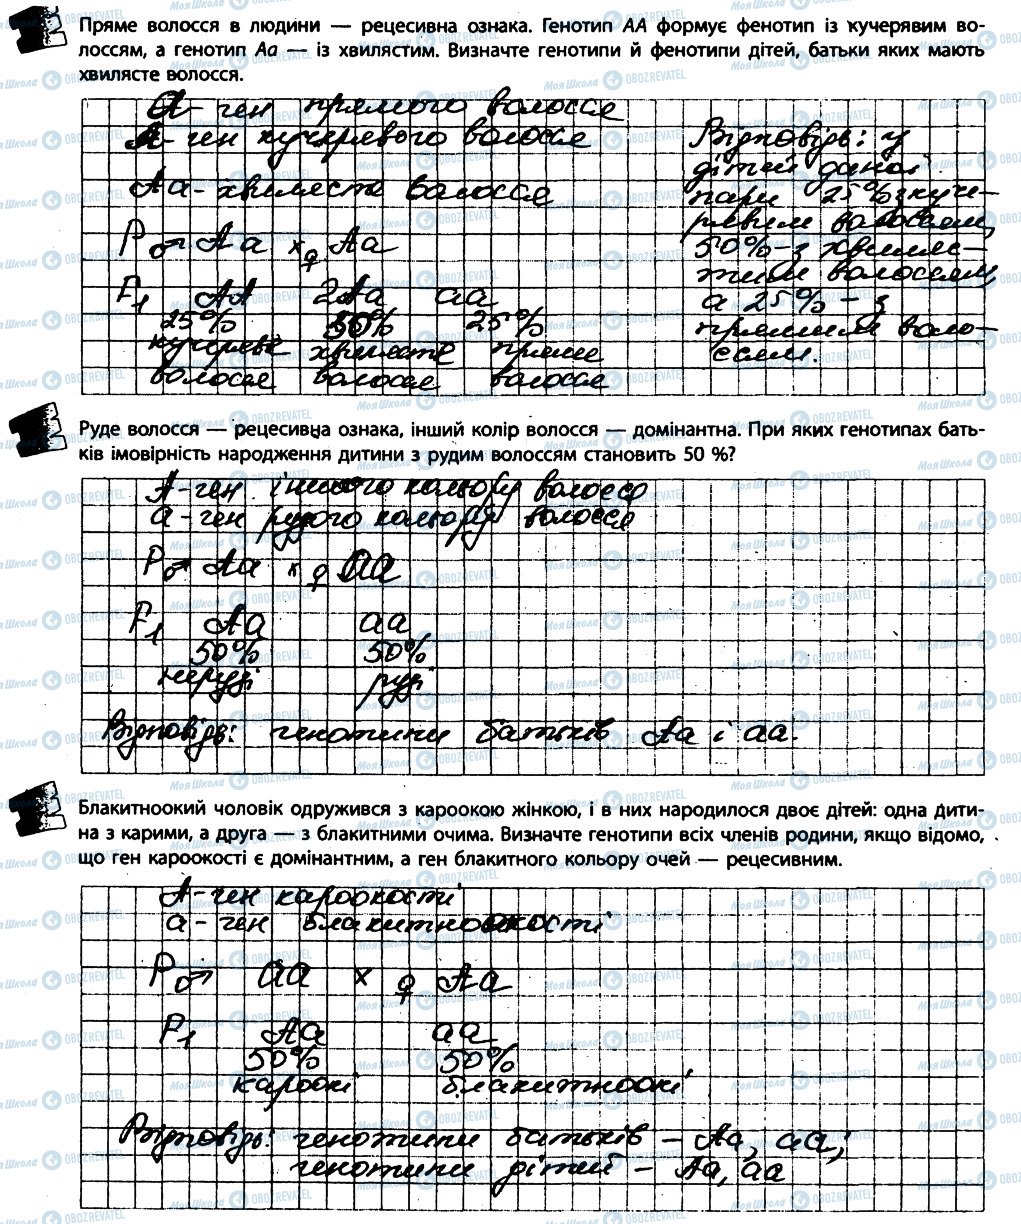 Пряме волосся в людини — рецесивна ознака. Генотип АА формує фенотип із кучерявим во-
лоссям, а генотип Аа — із хвилястим. Визначте генотипи й фенотипи дітей, батьки яких мають
хвилясте волосся.
а - ген прямого волосся
А - ген кучерявого волосся
Аа - хвилясте волосся
Р ♂ Аа х ♀ Аа
F₁ АА 2Аа аа
25% 50% 25%
кучеряве хвилясте пряме
волосся волосся волосся
Відповідь: у
дітей даної
пари 25% з куче-
рявим волоссям,
50% - з хвиляс-
тим волоссям,
а 25% - з
прямим воло-
ссям.
Руде волосся — рецесивна ознака, інший колір волосся — домінантна. При яких генотипах бать-
ків імовірність народження дитини з рудим волоссям становить 50 %?
А - ген іншого кольору волосся
а - ген рудого кольору волосся
Р ♂ Аа х ♀ аа
F₁ Аа аа
50% 50%
неруді руді
Відповідь: генотипи батьків Аа і аа.
Блакитноокий чоловік одружився з кароокою жінкою, і в них народилося двоє дітей: одна дити-
на з карими, а друга — з блакитними очима. Визначте генотипи всіх членів родини, якщо відомо,
що ген кароокості є домінантним, а ген блакитного кольору очей — рецесивним.
А - ген кароокості
а - ген блакитноокості
Р ♂ аа х ♀ Аа
F₁ Аа аа
50% 50%
кароокі блакитноокі
Відповідь: генотипи батьків - Аа, аа;
генотипи дітей - Аа, аа